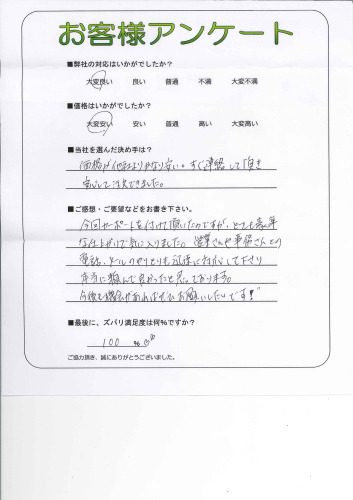 お客様アンケート
■弊社の対応はいかがでしたか？
大変良い 良い 普通 不満 大変不満
■価格はいかがでしたか？
大変安い 安い 普通 高い 大変高い
■当社を選んだ決め手は？
価格が他社よりかなり安い。すぐ連絡して頂き
安心して注文できました。
■ご感想・ご要望などをお書き下さい。
今回カーポートを付けて頂いたのですが、とても
な仕上がりで気に入りました。営業さんや事務さんとの
電話、メールのやりとりも迅速に対応して下さり
本当に頼んで良かったと思っております。
今後も機会があればぜひお願いしたいです!!
■最後に、ズバリ満足度は何%ですか？
100 %
ご協力頂き、誠にありがとうございました。